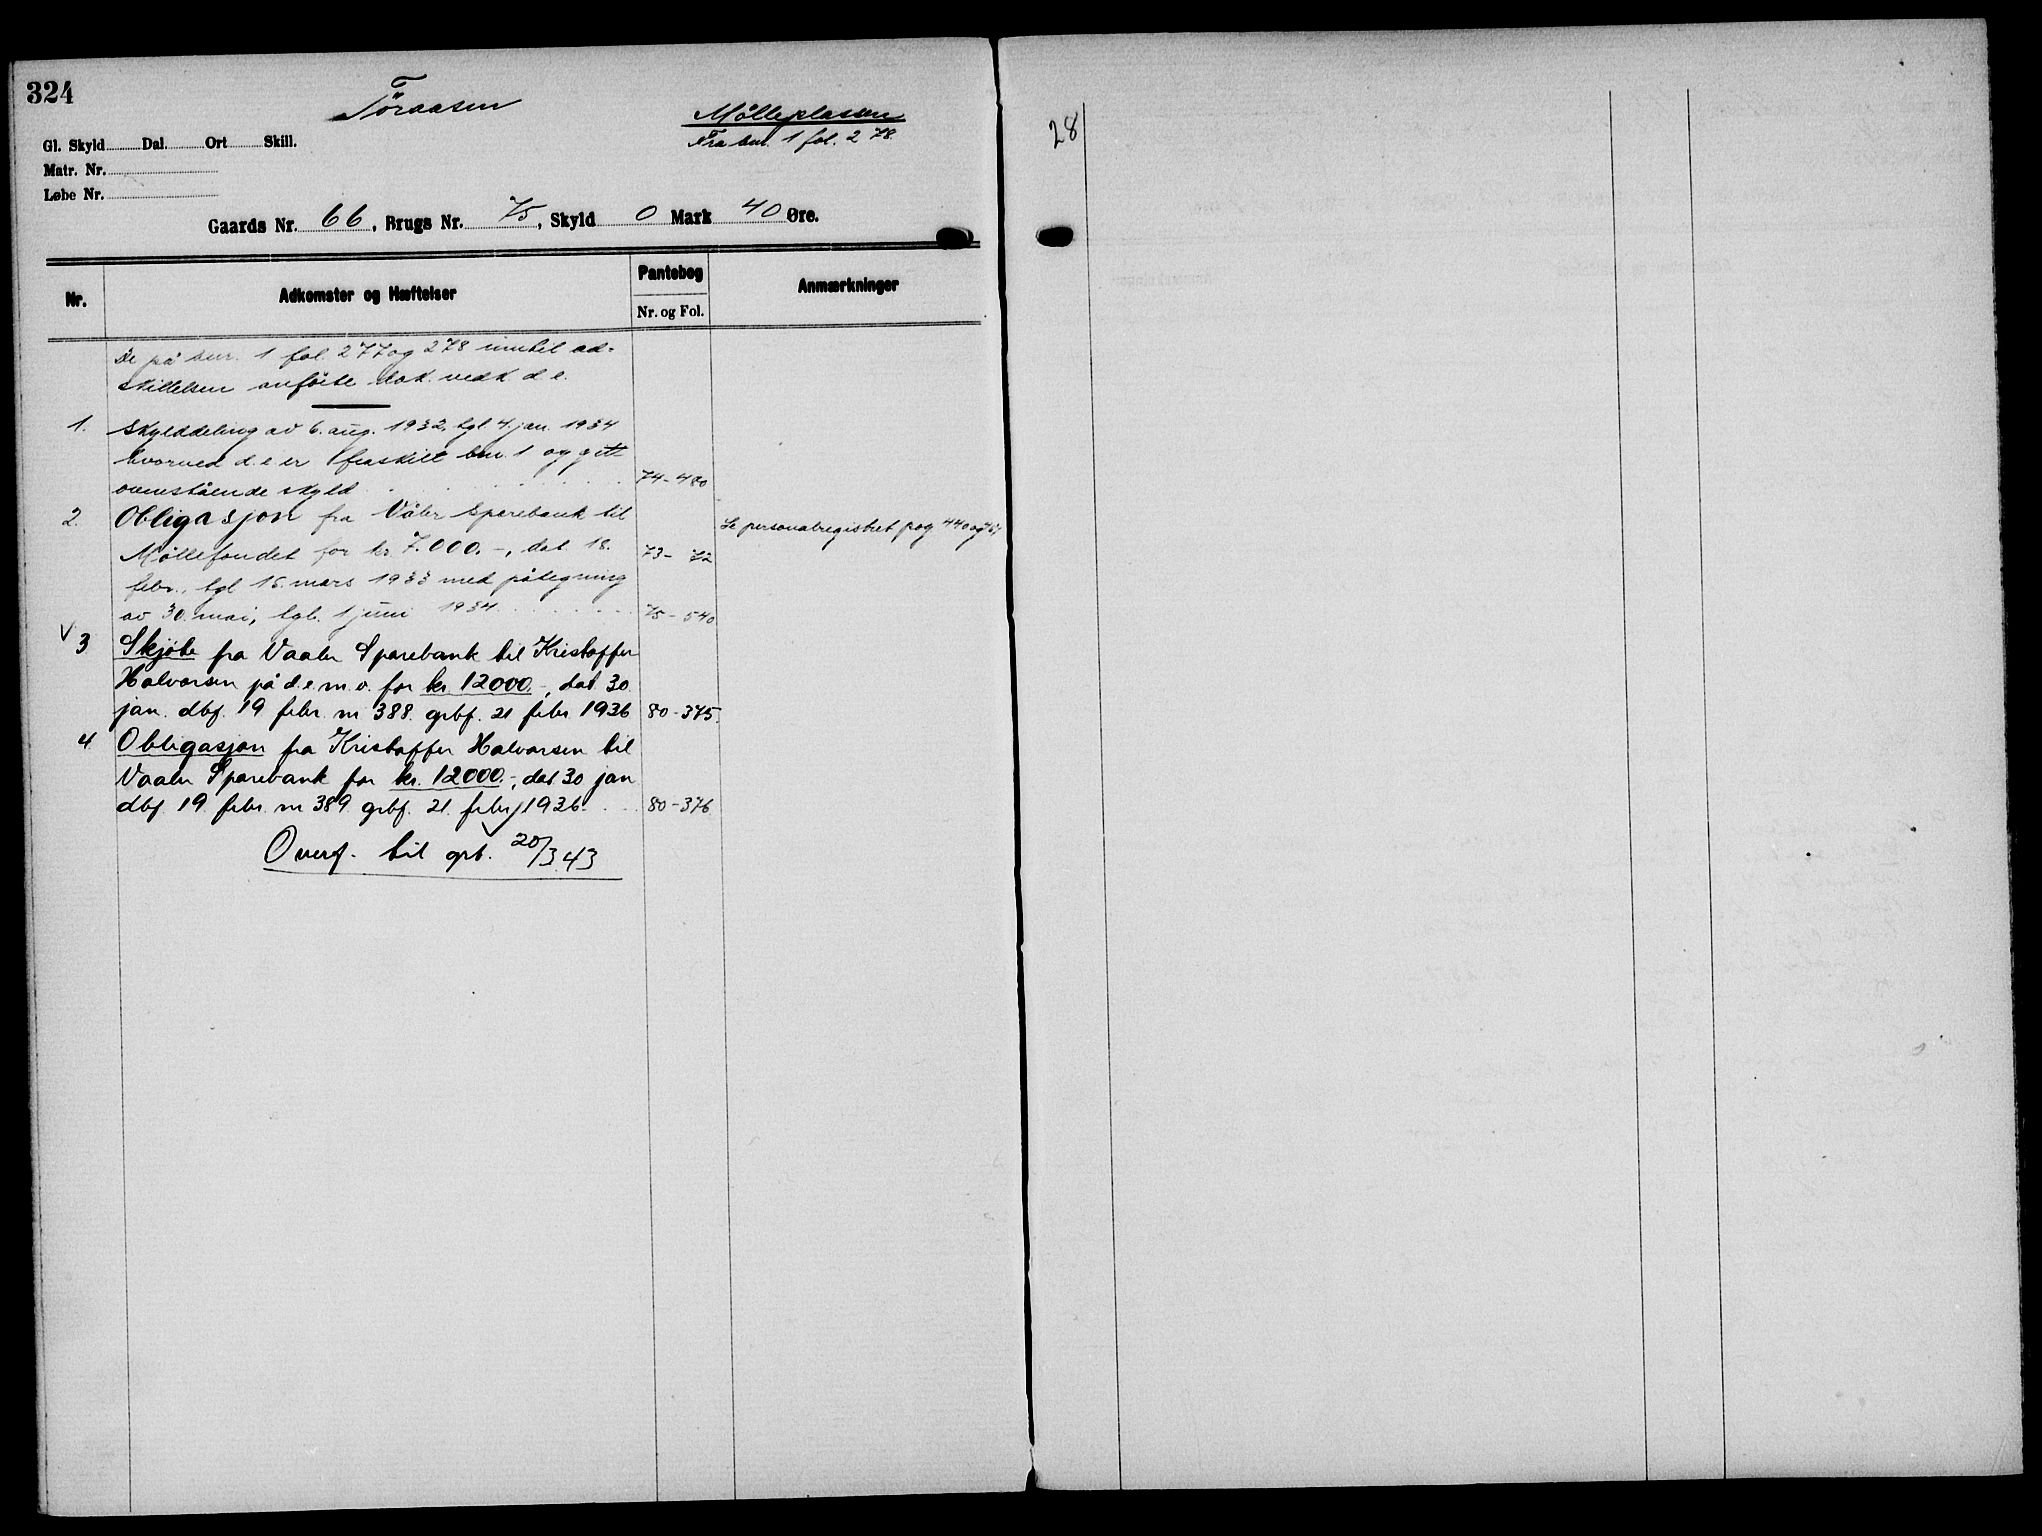 324
Töraasen
Mölleplassen
Fra bnr. 1 fol. 278
Gl. Skyld Dal. Ort Skill.
Matr. Nr.
Løbe Nr.
Gaards Nr. 66, Brugs Nr. 75, Skyld 0 Mark 40 Øre.
Nr. Adkomster og Hæftelser Pantebog Anmærkninger
Nr. og Fol.
De på bnr. 1 fol. 277 og 278 inntil ad-
skillelsen anförte dok. vedk d.e.
1. Skylddeling av 6. aug. 1932, tgl 4. jan. 1934
hvorved d.e er fraskilt bnr. 1 og gitt
ovenstående skyld 74-480
2. Obligasjon fra Våler Sparebank til
Se personalregistret pag 440 og
Møllefondet for kr 7.000.-, dat 18. 73-72
febr., tgl 15. mars 1933 med påtegning
av 30. mai, tgl. 1 juni 1934 75-540
V 3 Skjøte fra Vaaler Sparebank til Kristoffer
Halvorsen på d.e m.v. for kr. 12000.-, dat 30
jan. dbf. 19 febr. nr 388. grbf. 21 febr 1936 80-375.
4 Obligasjon fra Kristoffer Halvorsen til
Vaaler Sparebank for kr. 12000.-, dat 30 jan
dbf. 19. febr. nr 389 grbf. 21. febr 1936. 80-376
Overf. til grb. 20/3.43
28